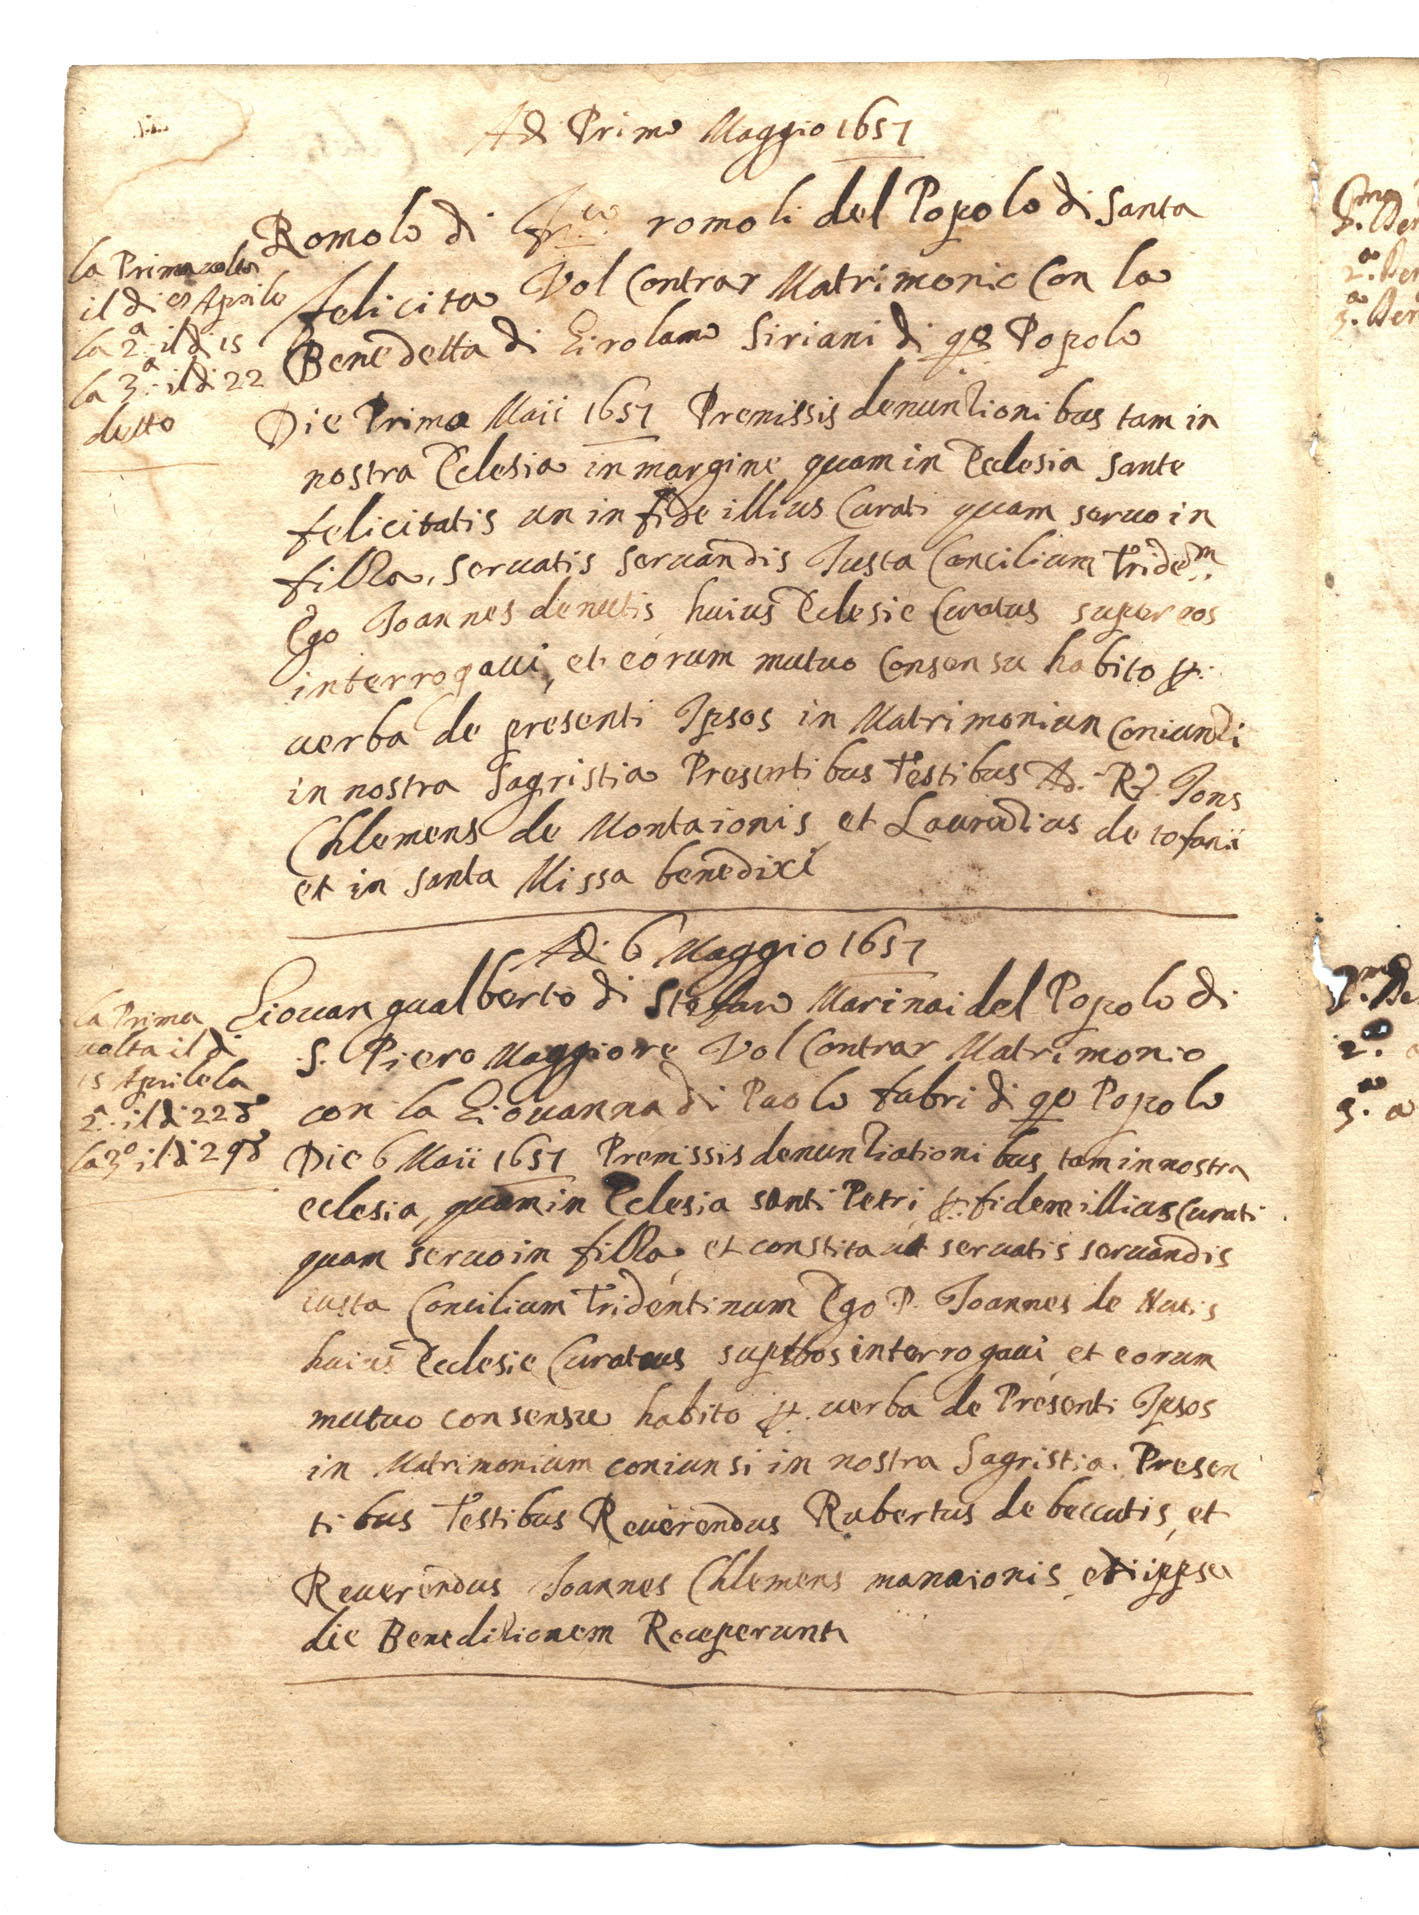 Adi Primo Maggio 1657
Romolo di romoli del Popolo di Santa
felicita Vol Contrar Matrimonio Con la
Benedetta di Girolamo Siriani di qo Popolo
la Prima volta
il di Aprile
la 2.a il di 15
la 3.a il di 22
detto
Die Prima Maii 1657 Premissis denuntionibus tam in
nostra Eclesia in margine quam in Eclesia Sante
felicitatis un in fide illius Curati quam servo in
filza, servatis servandis Iusta Concilium Tridem
Ego Joannes de nutis huius Eclesie Curatus super eos
interrogaui, et eorum mutuo Consensu habito p.
uerba de presenti Ipsos in Matrimoniun Coniunzi
in nostra Sagristia Presentibus Testibus Ad. Rd. Jons
Chlemens de Montaionis et Lauradius de tofanii
et in Santa Missa benedixi
Adi 6 Maggio 1657
Giouan gualberto di Stefano Marinai del Popolo di
S. Piero Maggiore Vol Contrar Matrimonio
con la Giouanna di Paolo fabri di qo Popolo
la Prima
uolta il di
15 Aprile la
2.a il di 22 do
la 3.a il di 29 do
Die 6 Maii 1657 Premissis denuntiationibus tam in nostra
eclesia, quam in Eclesia santi Petri p. fidem illius Curati
quam seruo in filza, et constita ut seruatis seruandis
iusta Concilium Tridentinum Ego P. Joannes de Nutis
huius Eclesie Curatus sup. hos interrogaui et eorum
mutuo consensu habito p. uerba de Presenti Ipsos
in Matrimonium coniunsi in nostra Sagristia. Presen
tibus Testibus Reuerendus Rubertus de beccutis, et
Reuerendus Joannes Chlemens manaionis et ippsa
die Beneditionem Receperunt